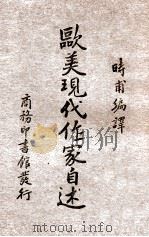 時甫編譯
歐美現代作家自述
商務印書館發行
mtoou.info